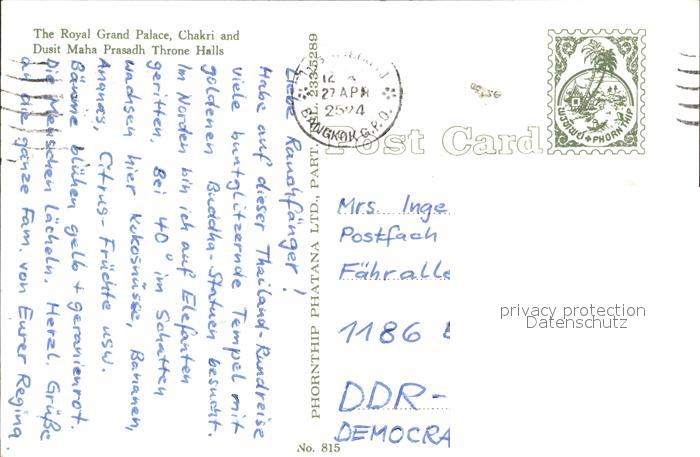 The Royal Grand Palace, Chakri and
Dusit Maha Prasadh Throne Halls
Liebe Rauchfänger!
Habe auf dieser Thailand-Rundreise
viele buntglitzernde Tempel mit
goldenen Buddha-Statuen besucht.
Im Norden bin ich auf Elefanten
geritten. Bei 40° im Schatten
wachsen hier Kokosnüsse, Bananen,
Ananas, Citrus-Früchte usw.
Bäume blühen gelb + geranienrot.
Die Menschen lächeln. Herzl. Grüße
an die ganze Fam. von Eurer Regina.
PHORNTHIP PHATANA LTD., PART. TEL. 2335289
No. 815
27 APR
2524
BANGKOK G.P.O.
Post Card
PHORN THIP
Mrs Inge
Postfach
Fähralle
1186
DDR-
DEMOCRA
privacy protection
Datenschutz